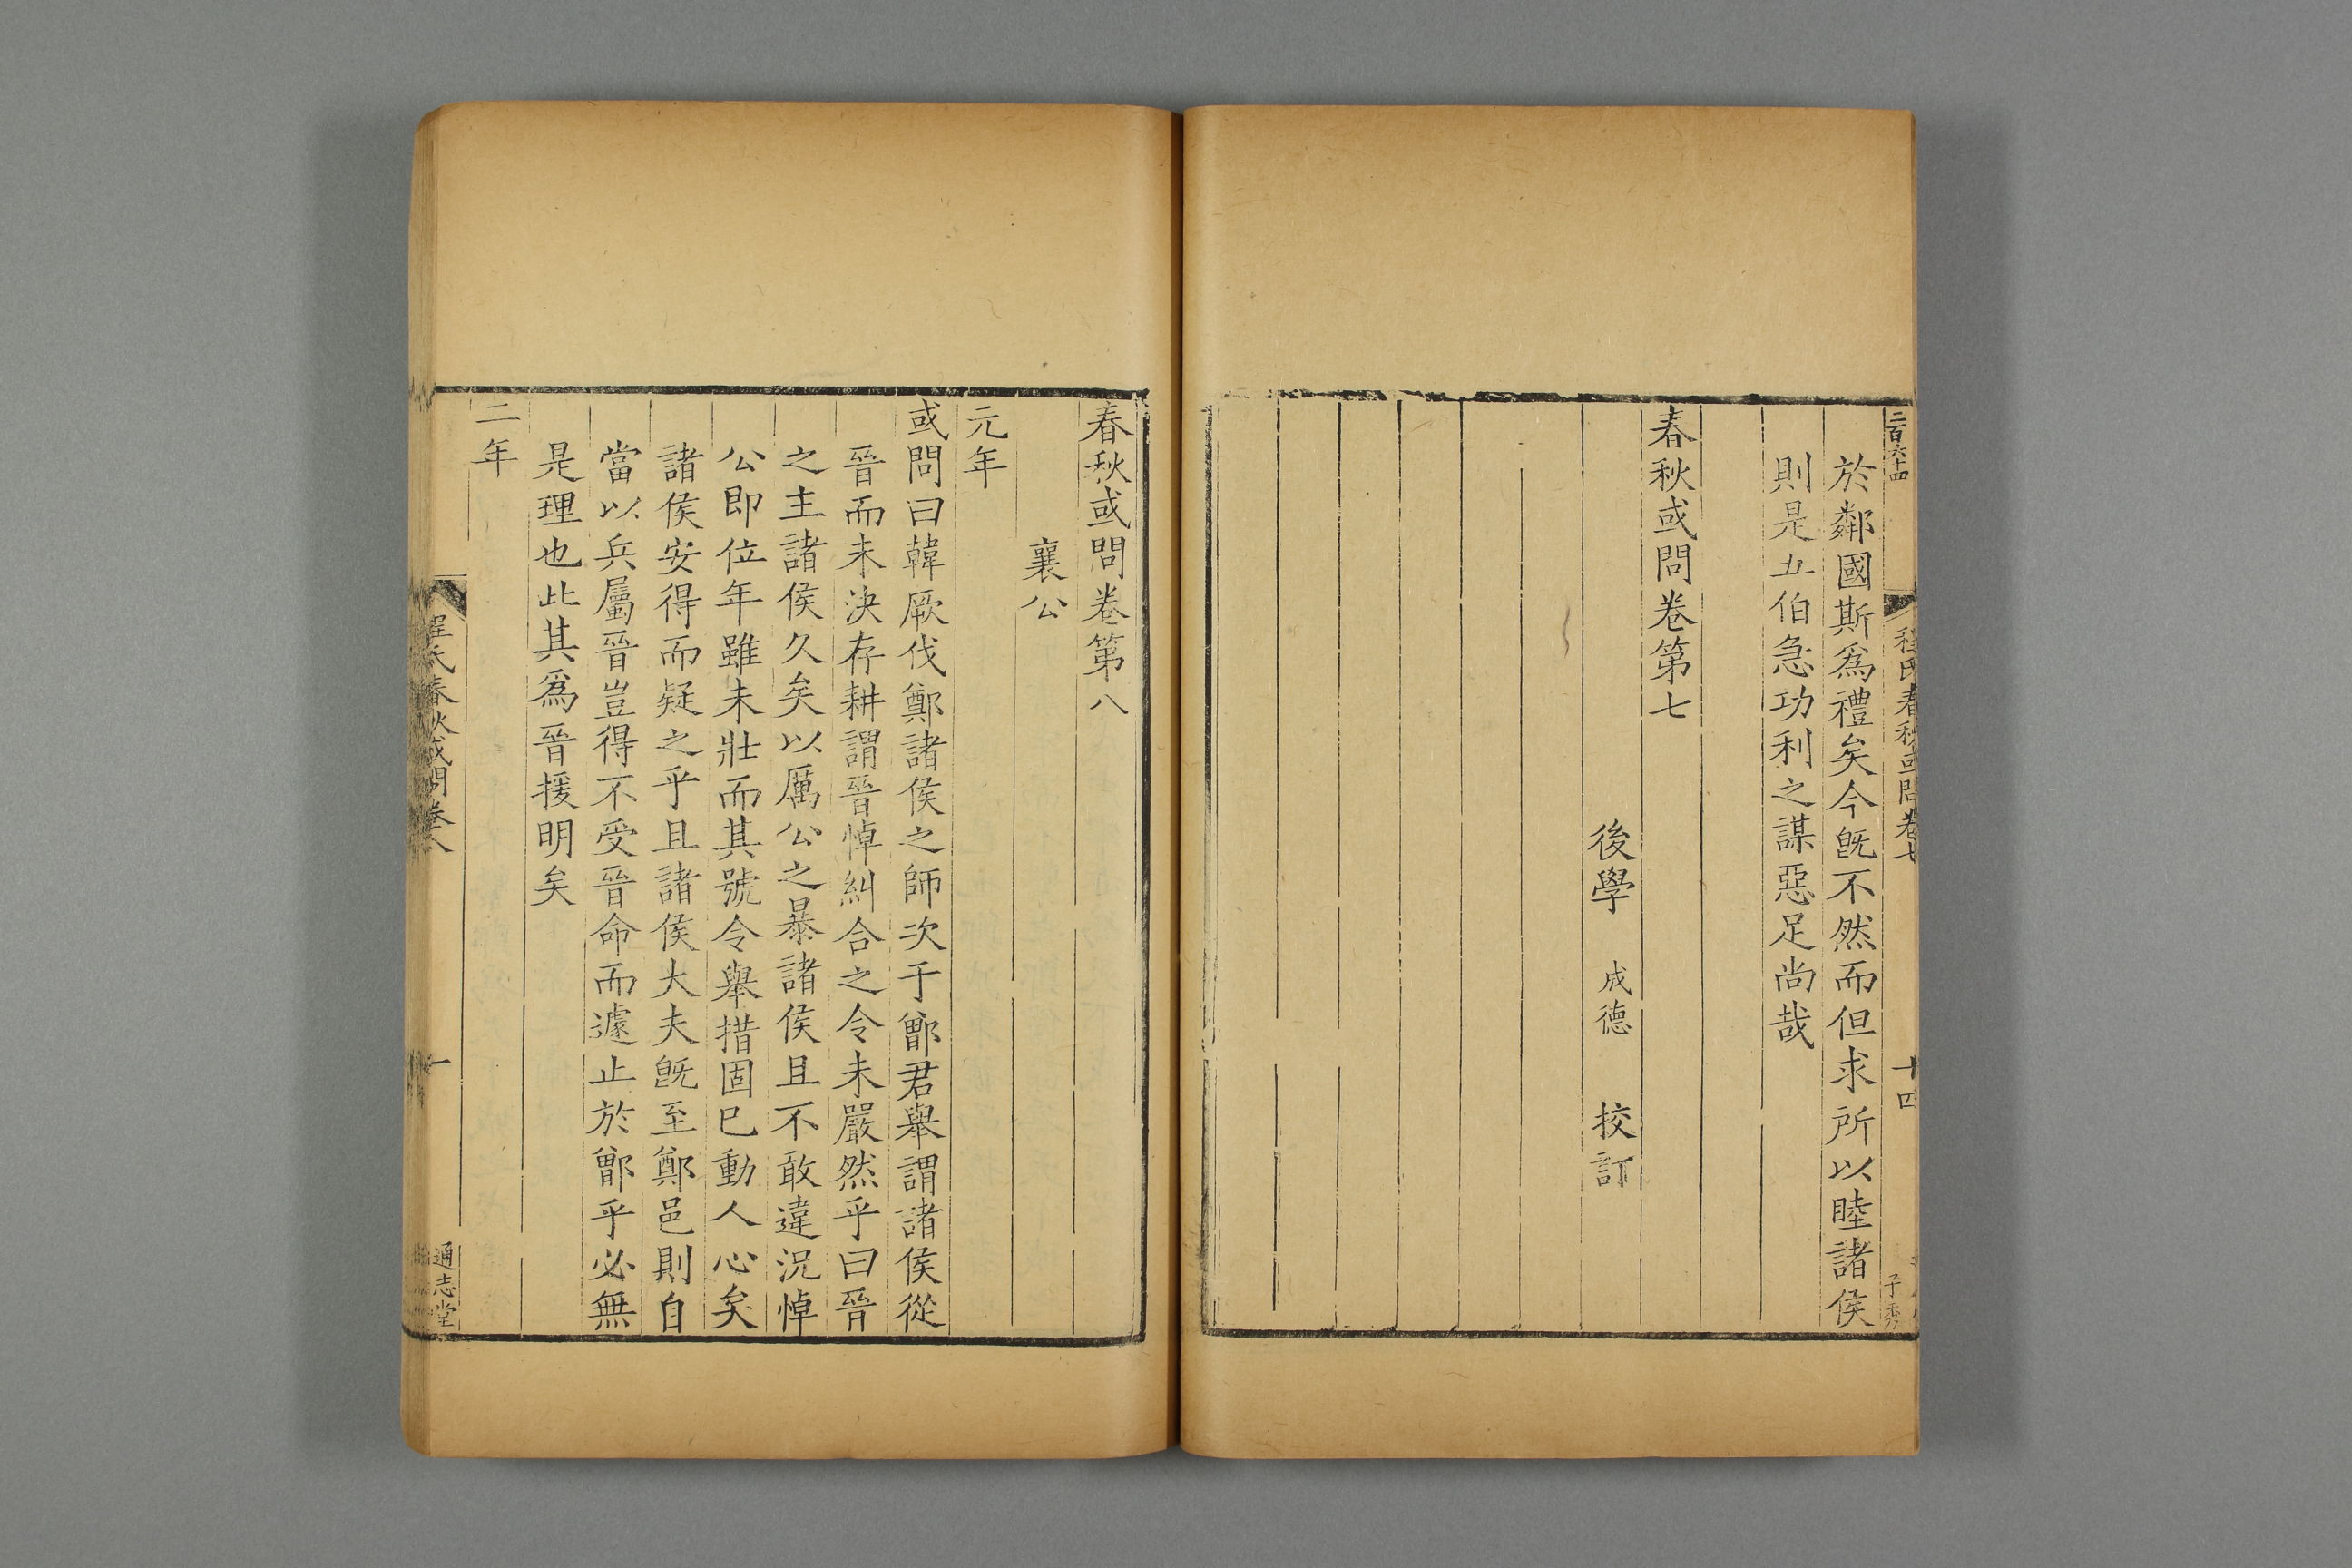 二百六十四
程氏春秋或問卷七
十四
子秀
於鄰國斯爲禮矣今旣不然而但求所以睦諸侯
則是五伯急功利之謀惡足尚哉
春秋或問卷第七
後學 成德 挍訂
春秋或問卷第八
襄公
元年
或問曰韓厥伐鄭諸侯之師次于鄫君舉謂諸侯從
晉而未決存耕謂晉悼糾合之令未嚴然乎曰晉
之主諸侯久矣以厲公之暴諸侯且不敢違況悼
公即位年雖未壯而其號令舉措固已動人心矣
諸侯安得而疑之乎且諸侯大夫旣至鄭邑則自
當以兵屬晉豈得不受晉命而遽止於鄫乎必無
是理也此其爲晉援明矣
二年
程氏春秋或問卷八
一
通志堂